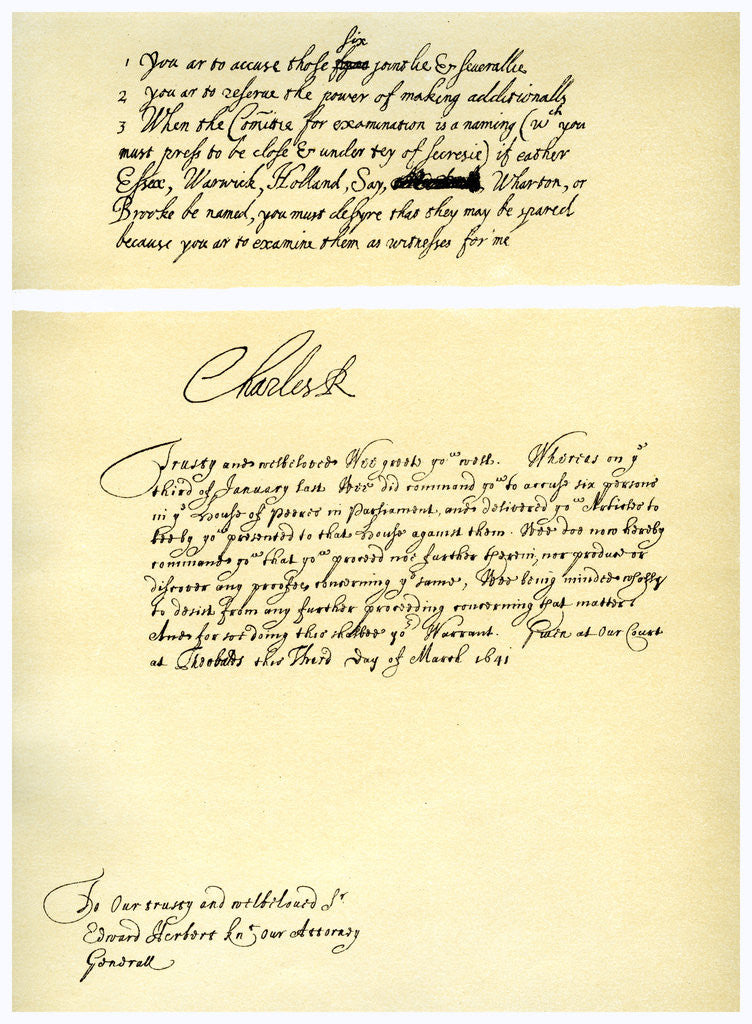 six
1 You ar to accuse those joint lie & severallie
2 you ar to reserve the power of making additionally
3 When the Com̃itie for examination is a naming (wch you
must press to be close & under tey of secresie) if eather
Essex, Warwick, Holland, Say, Wharton, or
Brooke be named, you must desyre that they may be spared
because you ar to examine them as witnesses for me
Charles R
Trusty and welbeloved Wee greete you well. Whereas on ye
third of January last Wee did command you to accuse six persons
in ye House of Peeres in Parliament, and delivered you Articles to
bee by you presented to that House against them. Wee doe now hereby
command you that you proceed noe further therein, nor produce or
discover any proofes concerning ye same, Wee being minded wholly
to desist from any further proceeding concerning that matter
And for soe doing this shalbee yor Warrant. Given at Our Court
at Theobalds this Third day of March 1641
To Our trusty and welbeloved Sr
Edward Herbert Knt Our Attorney
Generall